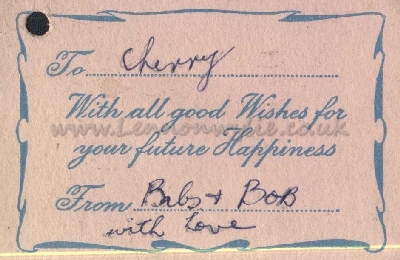 To Cherry
With all good Wishes for
www.Lemonwine.co.uk
your future Happiness
From Babs + Bob
with Love